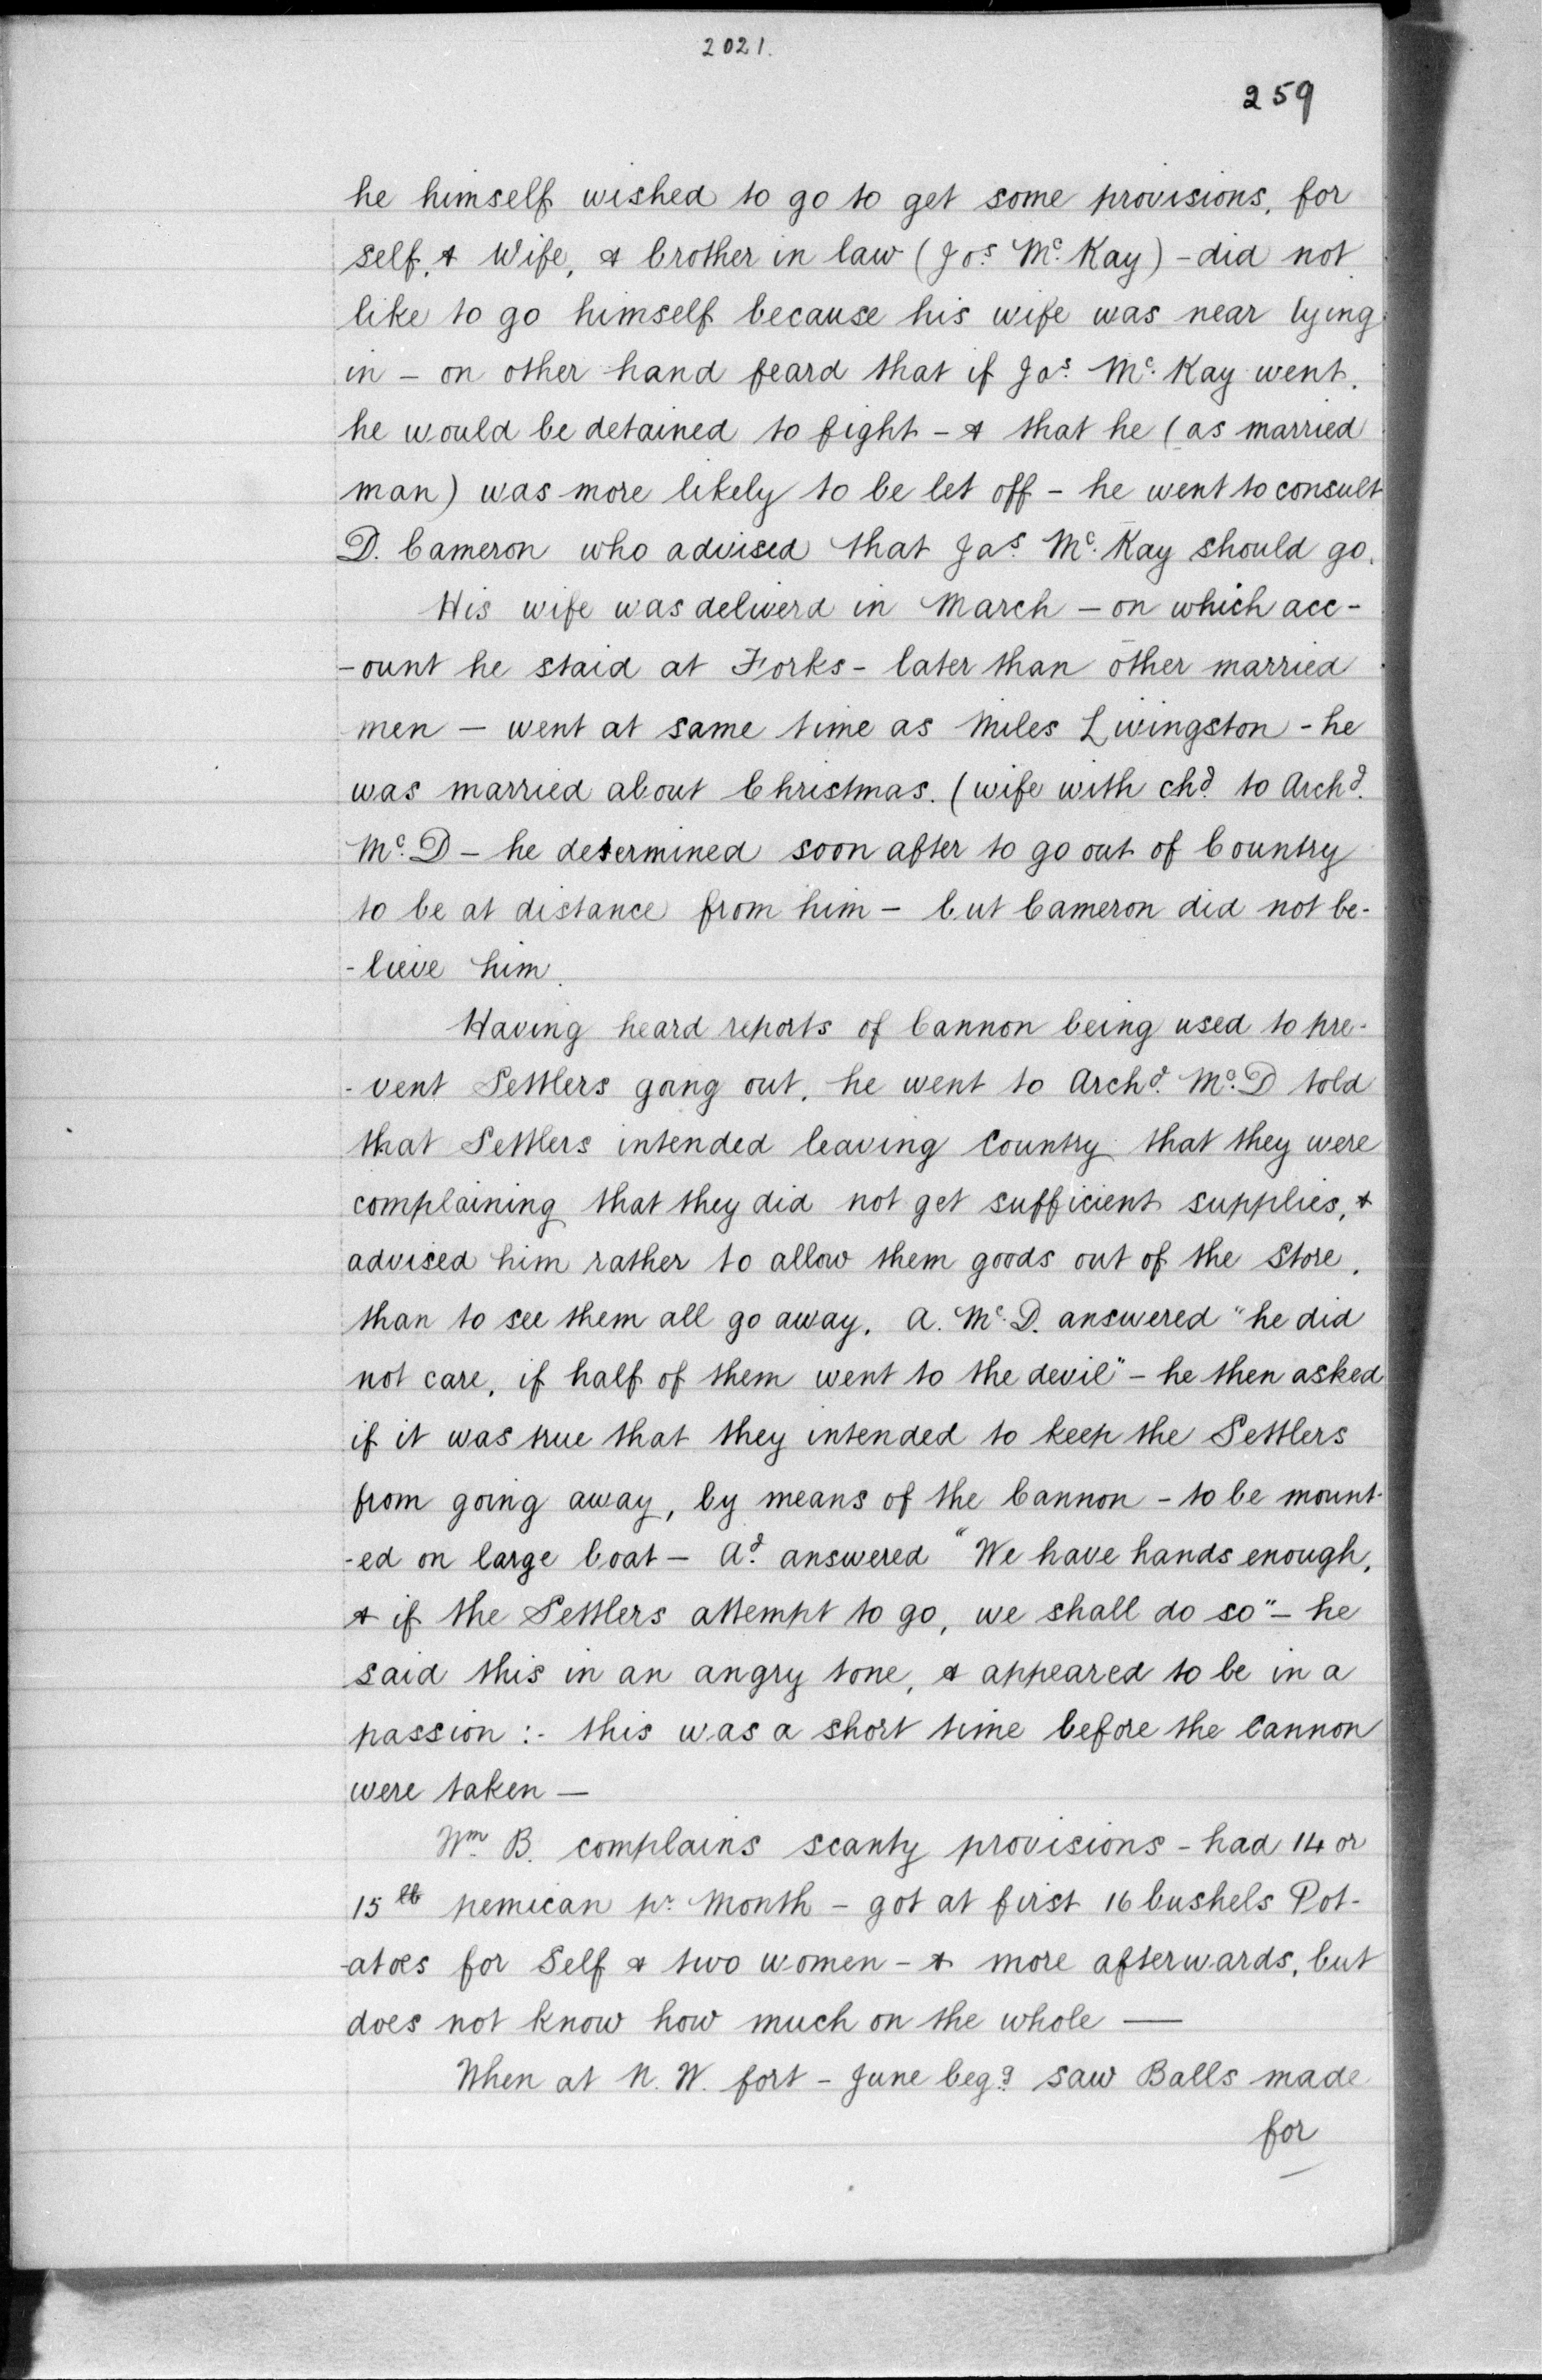 2021.
259
he himself wished to go to get some provisions, for
self, & Wife, & brother in law (Jos. Mc. Kay) - did not
like to go himself because his wife was near lying
in - on other hand feard that if Jas. Mc. Kay went,
he would be detained to fight - & that he (as married
man) was more likely to be let off - he went to consult
D. Cameron who advised that Jas. Mc. Kay should go.
His wife was deliverd in March - on which acc-
-ount he staid at Forks - later than other married
men - went at same time as Miles Livingston - he
was married about Christmas. (wife with chd. to Archd.
Mc. D - he determined soon after to go out of Country
to be at distance from him - but Cameron did not be-
-lieve him.
Having heard reports of Cannon being used to pre-
-vent Settlers going out, he went to Archd. Mc. D told
that Settlers intended leaving Country that they were
complaining that they did not get sufficient supplies, &
advised him rather to allow them goods out of the Store,
than to see them all go away. A. Mc. D. answered "he did
not care, if half of them went to the devil" - he then asked
if it was true that they intended to keep the Settlers
from going away, by means of the Cannon - to be mount-
-ed on large boat - Ad. answered "We have hands enough,
& if the Settlers attempt to go, we shall do so" - he
said this in an angry tone, & appeared to be in a
passion :- this was a short time before the Cannon
were taken —
Wm. B. complains scanty provisions - had 14 or
15 lb pemican pr. Month - got at first 16 bushels Pot-
-atoes for Self & two women - & more afterwards, but
does not know how much on the whole —
When at N. W. fort - June begg. saw Balls made
for